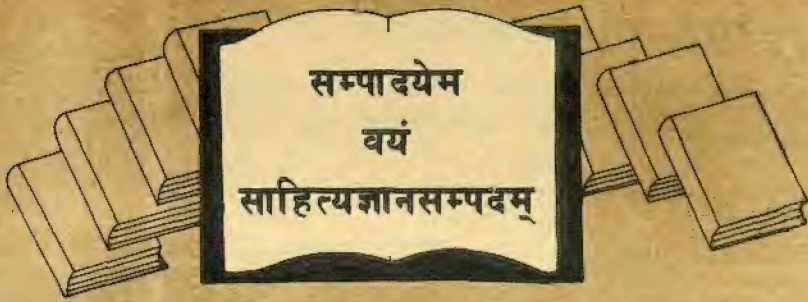 सम्पादयेम
वयं
साहित्यज्ञानसम्पदम्